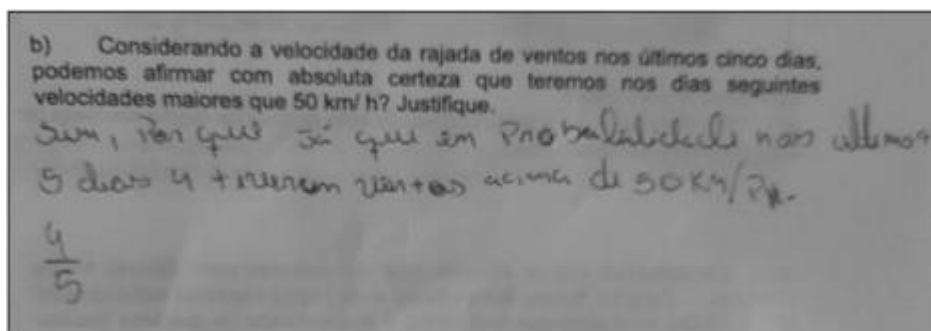 b) Considerando a velocidade da rajada de ventos nos últimos cinco dias,
podemos afirmar com absoluta certeza que teremos nos dias seguintes
velocidades maiores que 50 km/ h? Justifique.
Sim, Por que já que em Probabilidade nos ultimos
5 dias 4 tiverem ventos acima de 50 Km/
4
5